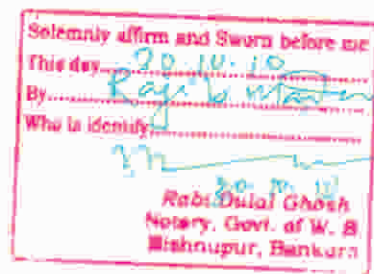 Solemnly affirm and Sworn before me
This day 20.10.10
By Rajib
Who is identify
20.10.10
Rabi Dulal Ghosh
Notary, Govt. of W. B.
Bishnupur, Bankura